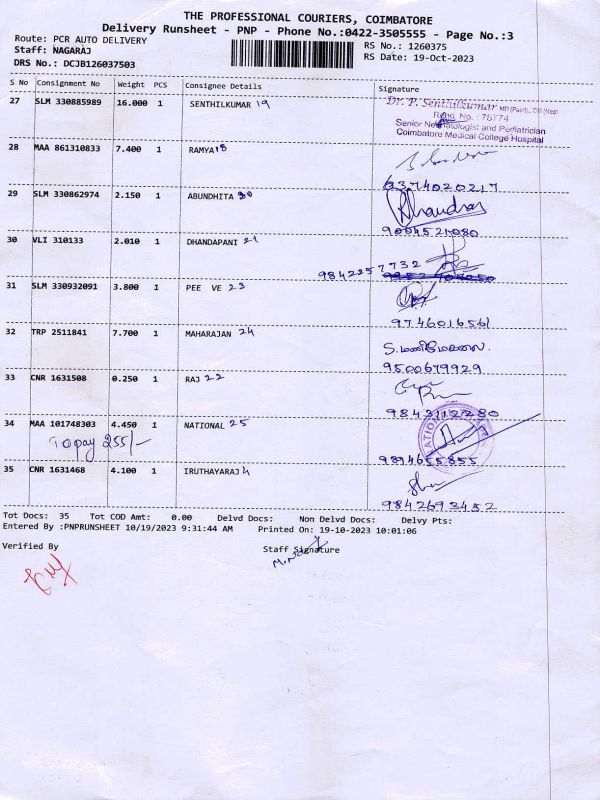 THE PROFESSIONAL COURIERS, COIMBATORE
Delivery Runsheet - PNP - Phone No.:0422-3505555 - Page No.:3
Route: PCR AUTO DELIVERY
Staff: NAGARAJ
DRS No.: DCJB126037503
RS No.: 1260375
RS Date: 19-Oct-2023
S No Consignment No Weight PCS Consignee Details Signature
27 SLM 330885989 16.000 1 SENTHILKUMAR 19
Dr. P. Senthilkumar
Senior Neonatologist and Pediatrician
Coimbatore Medical College Hospital
28 MAA 861310833 7.400 1 RAMYA 18
6374020217
29 SLM 330862974 2.150 1 ABUNDHITA 20
9004521080
30 VLI 310133 2.010 1 DHANDAPANI 21
9842257732
31 SLM 330932091 3.800 1 PEE VE 23
9746016561
32 TRP 2511841 7.700 1 MAHARAJAN 24
S.மணிமேகலை.
9500679929
33 CNR 1631508 0.250 1 RAJ 22
9843112280
34 MAA 101748303 4.450 1 NATIONAL 25
Topay 255/-
9894655855
35 CNR 1631468 4.100 1 IRUTHAYARAJ
9842693452
Tot Docs: 35 Tot COD Amt: 0.00 Delvd Docs: Non Delvd Docs: Delvy Pts:
Entered By :PNPRUNSHEET 10/19/2023 9:31:44 AM Printed On: 19-10-2023 10:01:06
Verified By Staff Signature